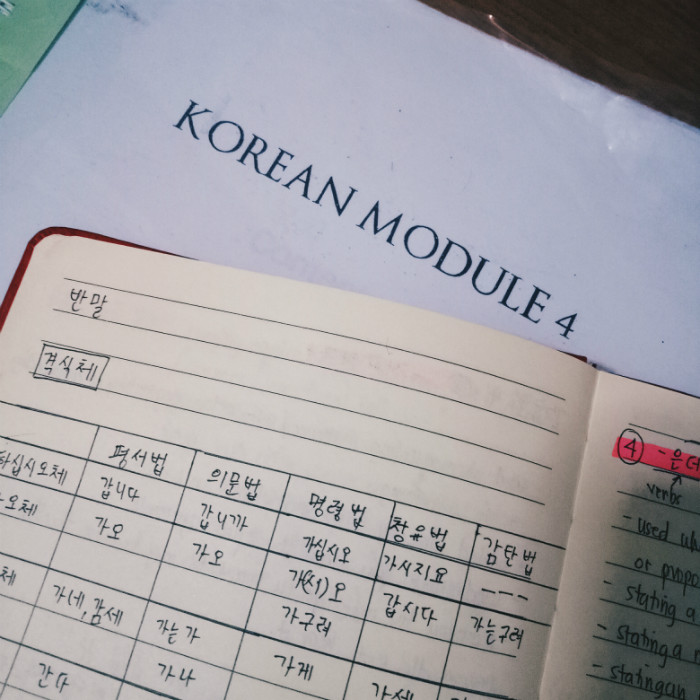 KOREAN MODULE 4
반말
격식체
평서법 의문법 명령법 창유법 감탄법
하십시오체 갑니다 갑니까 가십시오 가시지요 ---
오체 가오 가오 가(시)오 갑시다 가는구려
가구려
체 가네,감세 가는가 가게 가세
간다 가나
4 -은데
verbs
- used
or
- stating a
- stating a
- stating an